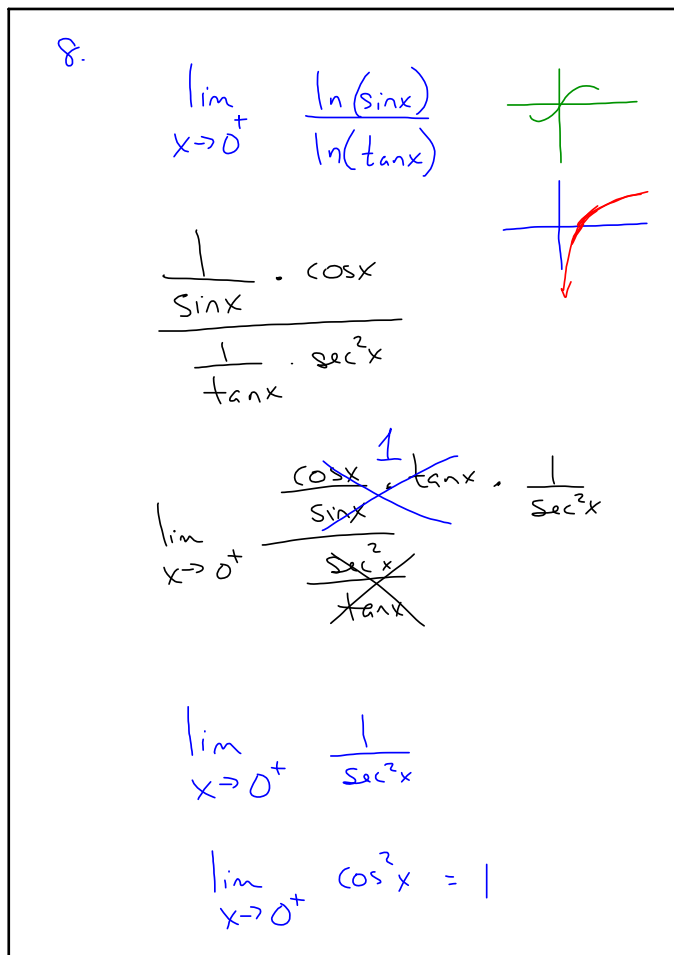 8.
lim x→0⁺ ln(sinx) / ln(tanx)
1/sinx · cosx
1/tanx · sec²x
1
lim x→0⁺ cosx/sinx · tanx · 1/sec²x
sec²x/tanx
lim x→0⁺ 1/sec²x
lim x→0⁺ cos²x = 1